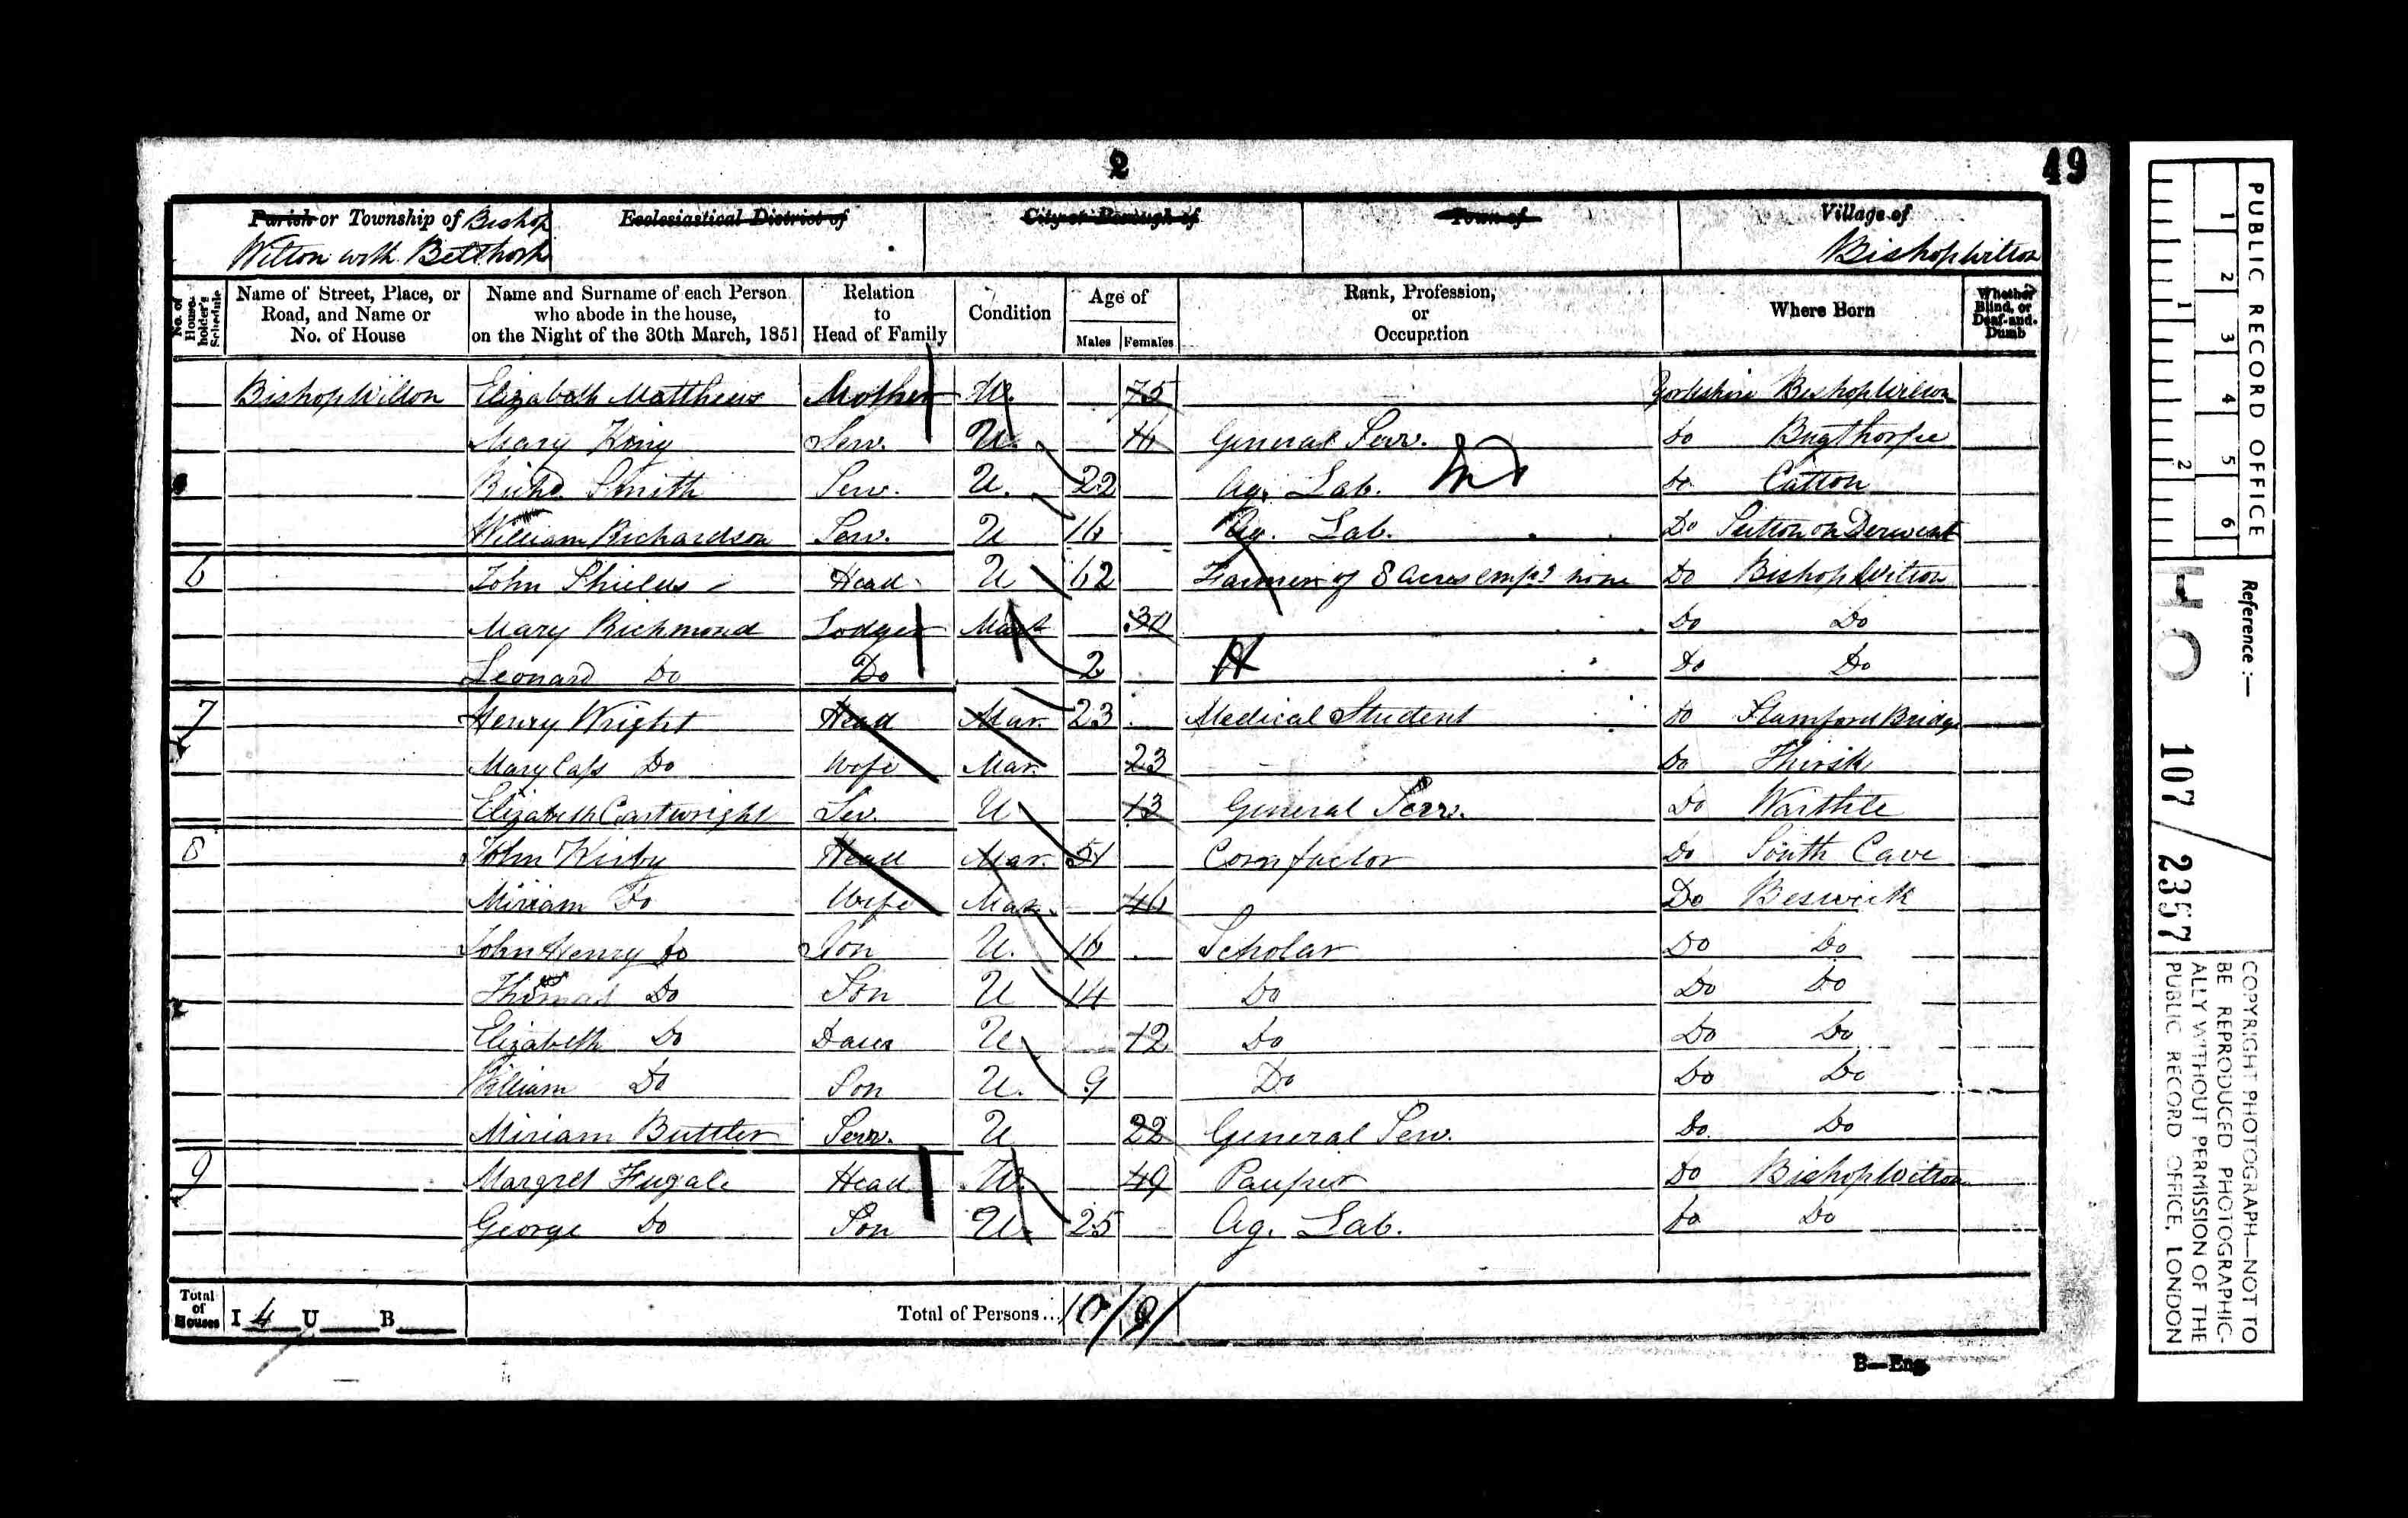 2
49
Parish or Township of Bishop
Wilton with Belthorpe
Ecclesiastical District of
City or Borough of
Town of
Village of
Bishop Wilton
No. of House-holder's Schedule
Name of Street, Place, or Road, and Name or No. of House
Name and Surname of each Person who abode in the house, on the Night of the 30th March, 1851
Relation to Head of Family
Condition
Age of
Males Females
Rank, Profession, or Occupation
Where Born
Whether Blind, or Deaf-and-Dumb
Bishop Wilton Elizabeth Matthews Mother W. 75 Yorkshire Bishop Wilton
Mary King Serv. U. 16 General Serv. Do Bugthorpe
Richd. Smith Serv. U. 22 Ag. Lab. Do Catton
William Richardson Serv. U 16 Ag. Lab. Do Sutton on Derwent
6 John Shields Head U 62 Farmer of 8 Acres empg none Do Bishop Wilton
Mary Richmond Lodger Do Do
Leonard Do Do 2 Do Do
7 Henry Wright Head Mar. 23 Medical Student Do Stamford Bridge
Mary Cass Do Wife Mar. 23 Do Thirsk
Elizabeth Cartwright Ser U 13 General Serv. Do Warthile
8 John Kirby Head Mar. 51 Corn factor Do South Cave
Miriam Do Wife Mar. 46 Do Beswick
John Henry Do Son U. 16 Scholar Do Do
Thomas Do Son U 14 Do Do Do
Elizabeth Do Daur U 12 Do Do Do
William Do Son U. 9 Do Do Do
Miriam Buttler Serv. U 22 General Serv. Do Do
9 Margret Fugale Head W. 49 Pauper Do Bishop Wilton
George Do Son U. 25 Ag. Lab. Do Do
Total of Houses I 4 U B
Total of Persons... 10 9
B—Eng.
PUBLIC RECORD OFFICE
1 2 3 4 5 6
1 2
Reference :—
HO 107 / 2357
COPYRIGHT PHOTOGRAPH—NOT TO
BE REPRODUCED PHOTOGRAPHIC-
ALLY WITHOUT PERMISSION OF THE
PUBLIC RECORD OFFICE, LONDON